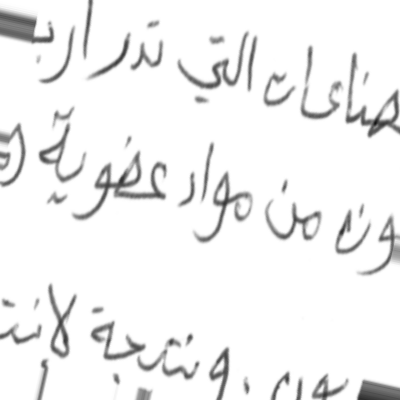 صناعات التي تدر ارب
ون من مواد عضوية (ه
ون. ونتيجة لانت